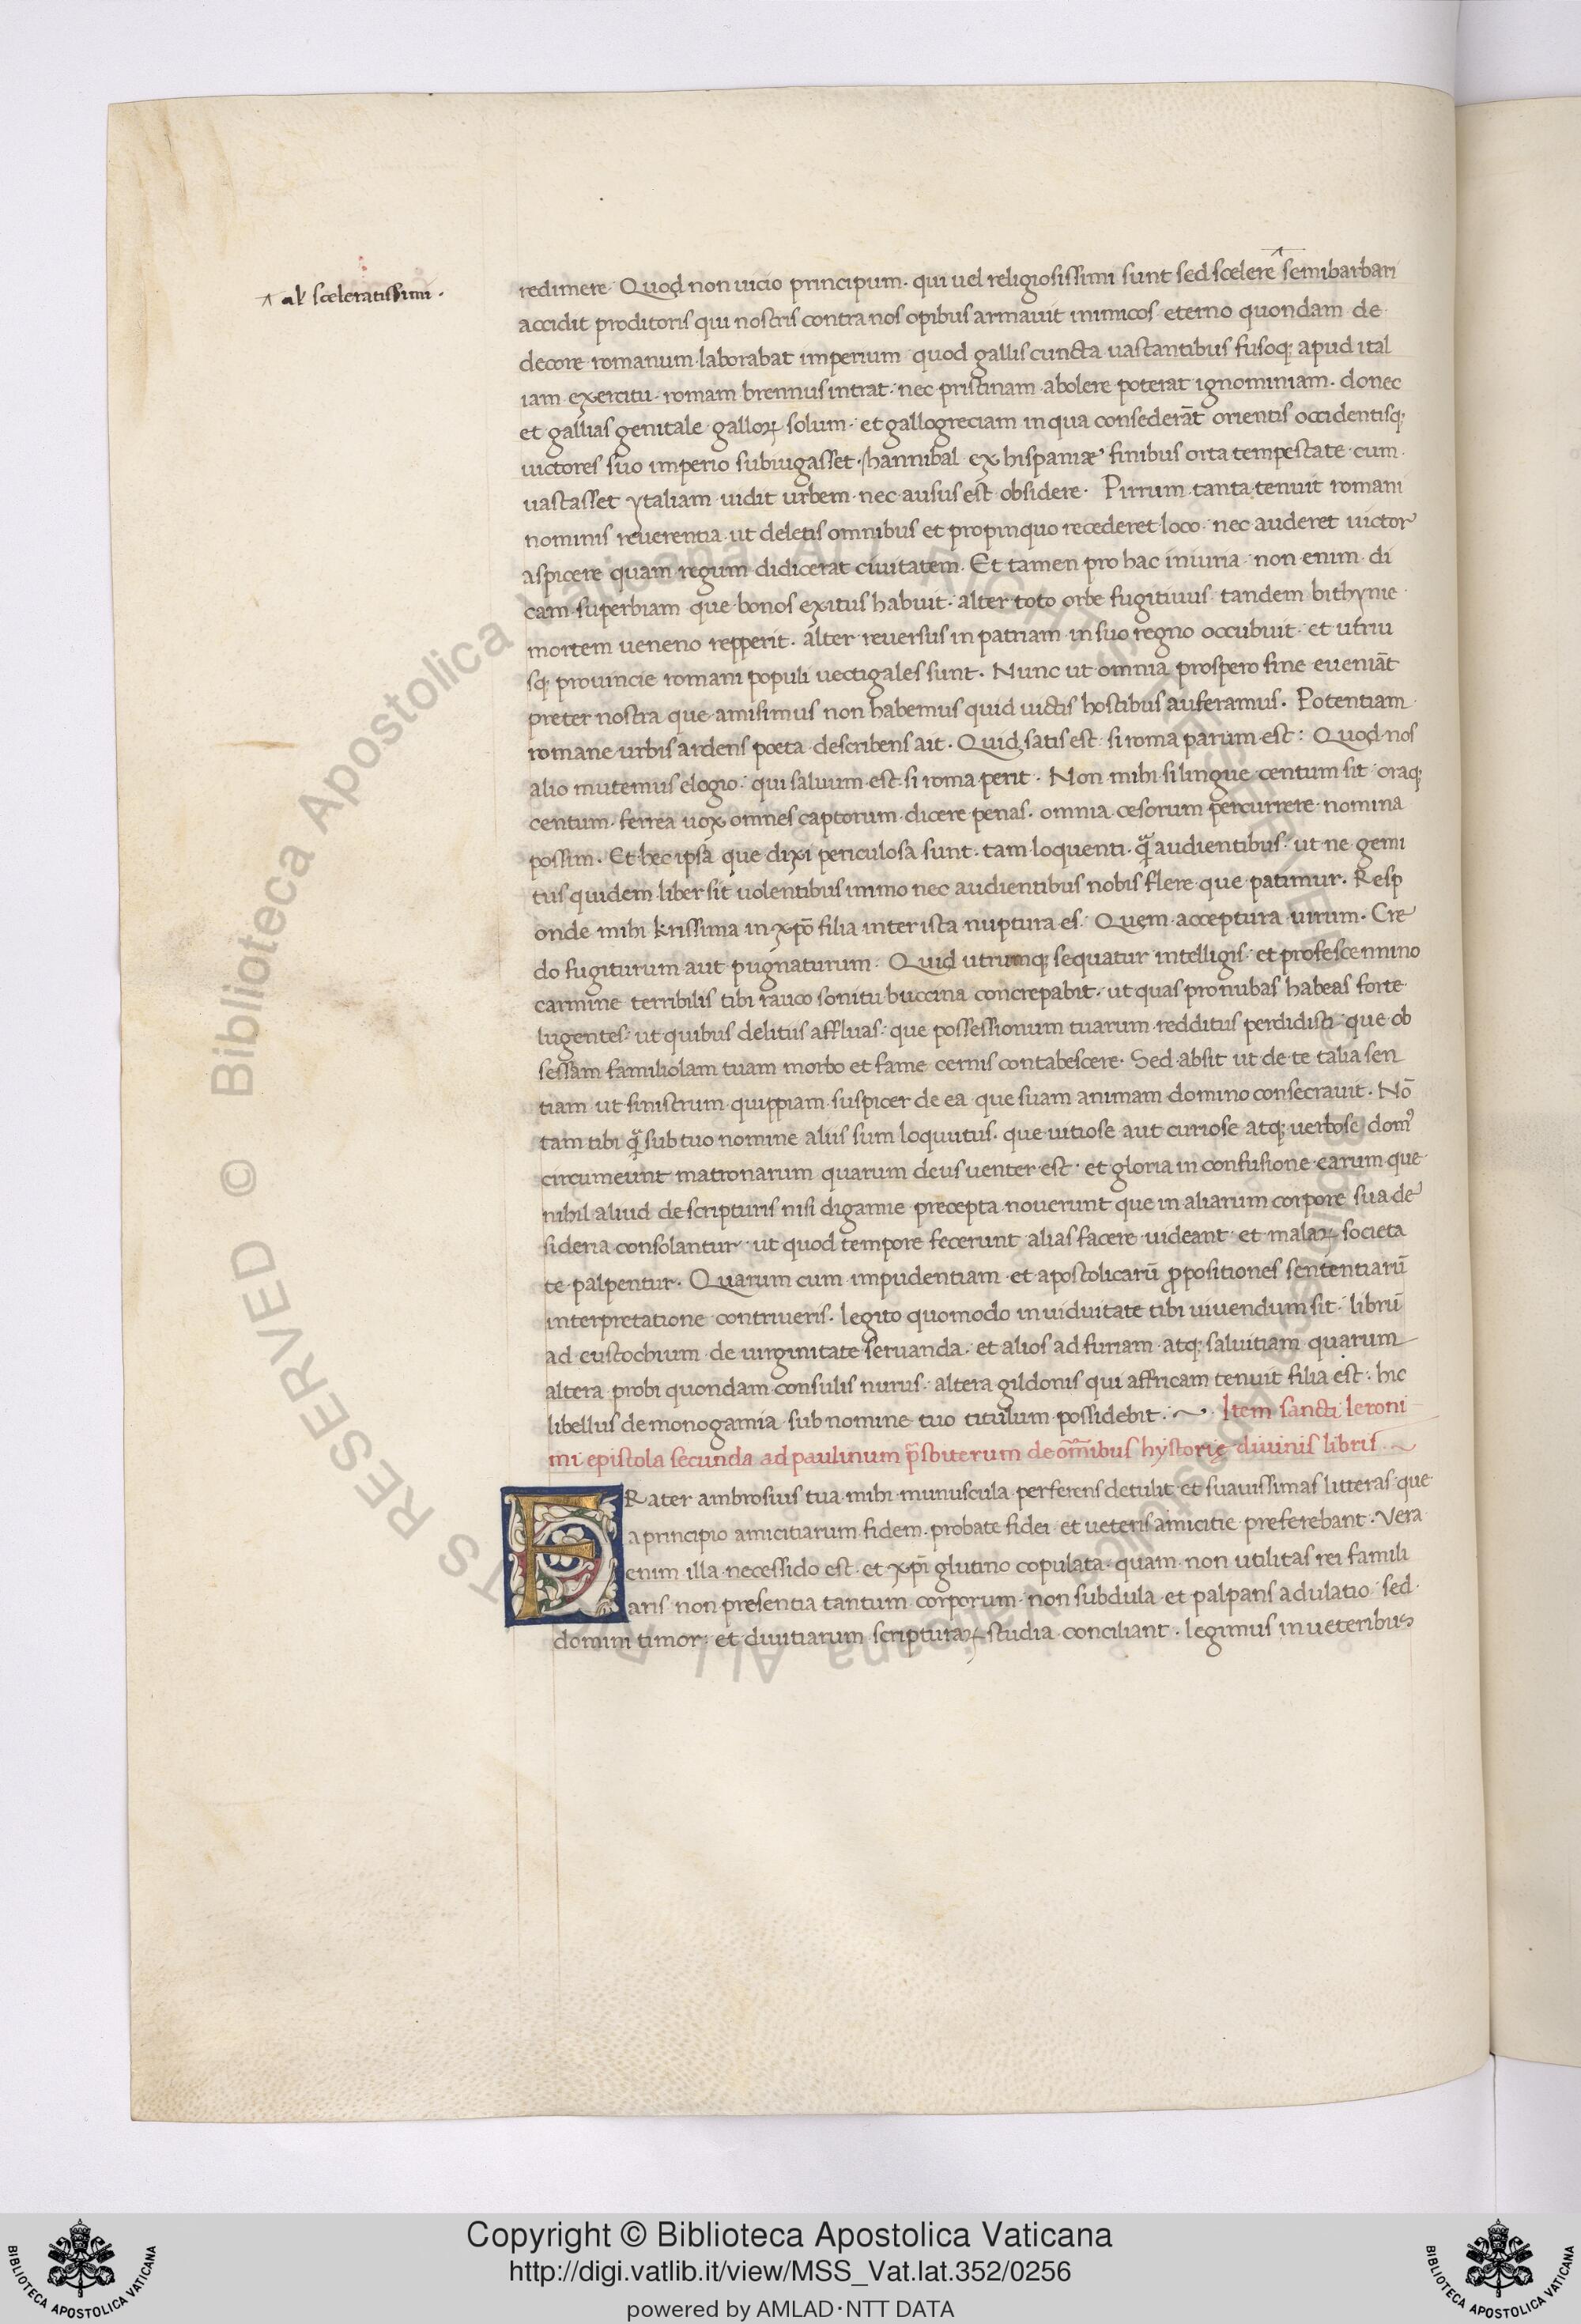 ^ al' sceleratissimi .
redimere · Quod non uicio principum · qui uel religiosissimi sunt sed scelere ^ semibarbari
accidit proditoris qui nostris contra nos opibus armauit inimicos · eterno quondam de
decore romanum laborabat imperium quod gallis cuncta uastantibus fusoq; apud ital
iam exercitu · romam brennus intrat · nec pristinam abolere poterat ignominiam · donec
et gallias genitale galloꝝ solum · et gallogreciam in qua consederāt orientis occidentisq;
uictores suo imperio subiugasset · hannibal ex hispaniae finibus orta tempestate cum
uastasset ytaliam uidit urbem nec ausus est obsidere · Pirrum tanta tenuit romani
nominis reuerentia ut deletis omnibus et propinquo recederet loco · nec auderet uictor
aspicere quam regum didicerat ciuitatem · Et tamen pro hac iniuria non enim di
cam superbiam que bonos exitus habuit · alter toto orbe fugitiuus tandem bithynie
mortem ueneno repperit · alter reuersus in patriam in suo regno occubuit · et utriu
sq; prouincie romani populi uectigales sunt · Nunc ut omnia prospero fine eueniāt
preter nostra que amisimus non habemus quid uictis hostibus auferamus · Potentiam
romane urbis ardens poeta describens ait · Quid satis est si roma parum est : Quod nos
alio mutemus elogio · qui saluum est si roma perit · Non mihi si lingue centum sit oraq;
centum · ferrea uox omnes captorum dicere penas · omnia cesorum percurrere nomina
possim · Et hec ipsa que dixi periculosa sunt · tam loquenti · q̃ audientibus · ut ne gemi
tus quidem liber sit uolentibus immo nec audientibus nobis flere que patimur · Resp
onde mihi krissima in xp̄o filia inter ista nuptura es · Quem acceptura uirum · Cre
do fugiturum aut pugnaturum · Quid utrumq; sequatur intelligis · et pro fescennino
carmine terribilis tibi rauco sonitu buccina concrepabit · ut quas pronubas habeas forte
lugentes · ut quibus delitiis affluas · que possessionum tuarum redditus perdidisti · que ob
sessam familiolam tuam morbo et fame cernis contabescere · Sed absit ut de te talia sen
tiam ut sinistrum quippiam suspicer de ea que suam animam domino consecrauit · Nō
tam tibi q̃ sub tuo nomine aliis sum loquutus · que uitiose aut curiose atq; uerbose domꝰ
circumeunt matronarum quarum deus uenter est · et gloria in confusione earum que
nihil aliud de scripturis nisi digamie precepta nouerunt que in aliarum corpore sua de
sideria consolantur · ut quod tempore fecerunt alias facere uideant · et malaꝝ societa
te palpentur · Quarum cum impudentiam et apostolicarū ꝓpositiones sententiarū
interpretatione contriueris · legito quomodo in uiduitate tibi uiuendum sit · librū
ad eustochium de uirginitate seruanda · et alios ad furiam atq; saluitiam quarum
altera probi quondam consulis nurus · altera gildonis qui affricam tenuit filia est · hic
libellus de monogamia sub nomine tuo titulum possidebit · ~ · Item sancti Ieroni
mi epistola secunda ad paulinum p̄sbiterum de om̄ibus hystorię diuinis libris ~
FRater ambrosius tua mihi munuscula perferens detulit et suauissimas litteras que
a principio amicitiarum fidem probate fidei et ueteris amicitie preferebant · Vera
enim illa necessido est et xp̄i glutino copulata quam non utilitas rei famili
aris non presentia tantum corporum · non subdula et palpans adulatio sed
domini timor : et diuitiarum scripturaꝝ studia conciliant · legimus in ueteribus
Copyright © Biblioteca Apostolica Vaticana
http://digi.vatlib.it/view/MSS_Vat.lat.352/0256
powered by AMLAD·NTT DATA